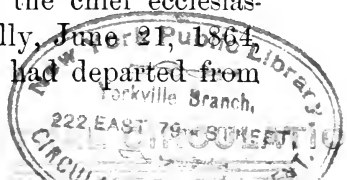 the chief ecclesias-
lly, June 21, 1864,
had departed from
New York Public Library
Yorkville Branch,
222 EAST 79TH STREET,
CIRCULATING DEPARTMENT.